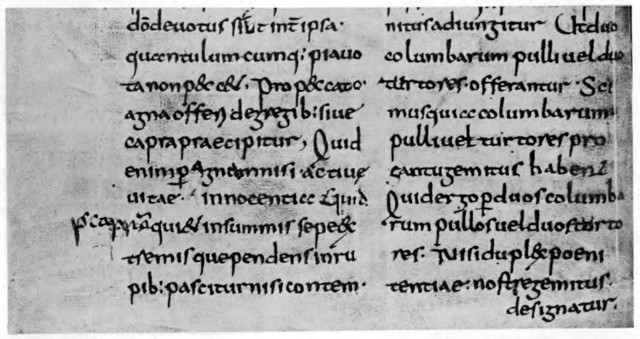 dōdevotus simt int ipsa.
quantulumcumq: piavo
ta non pdcat. Pro peccato
agna offert de gregib: sive
capra praecipitur, Quid
enim p agnam nisi activae
vitae innocentia Quid
p capram quae in summis saepe ex
tremis quependens inru
pib: pascitur nisi contem
nitus adiungitur Ut duo
columbarum pulli vel duo
turtores offerantur Sci
mus quia columbarum
pulli vel turtores pro
cantu gemitus habent
Quid ergo p duos columba
rum pullos vel duos turto
res. Nisi duplex poeni
tentiae: nostrae gemitus
designatur.